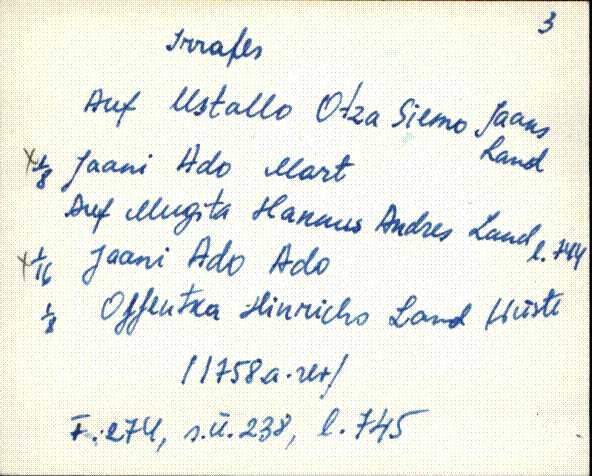 3
Irrafes
Auf Ustallo Otza Siemo Jaans Land
x 1/8 Jaani Ado Mart
Auf Mugita Hannus Andres Land l. 744
x 1/16 Jaani Ado Ado
1/8 Offentxa Hinricho Land Wüste
/1758.a. rev/
F. 274, s.ü. 238, l. 745